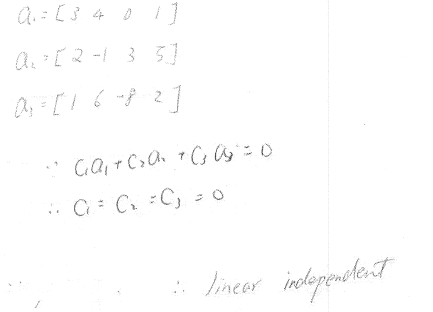 a₁=[3 4 0 1]
a₂=[2 -1 3 5]
a₃=[1 6 -8 2]
∵ C₁a₁+C₂a₂+C₃a₃=0
∴ C₁=C₂=C₃=0
∴ linear independent